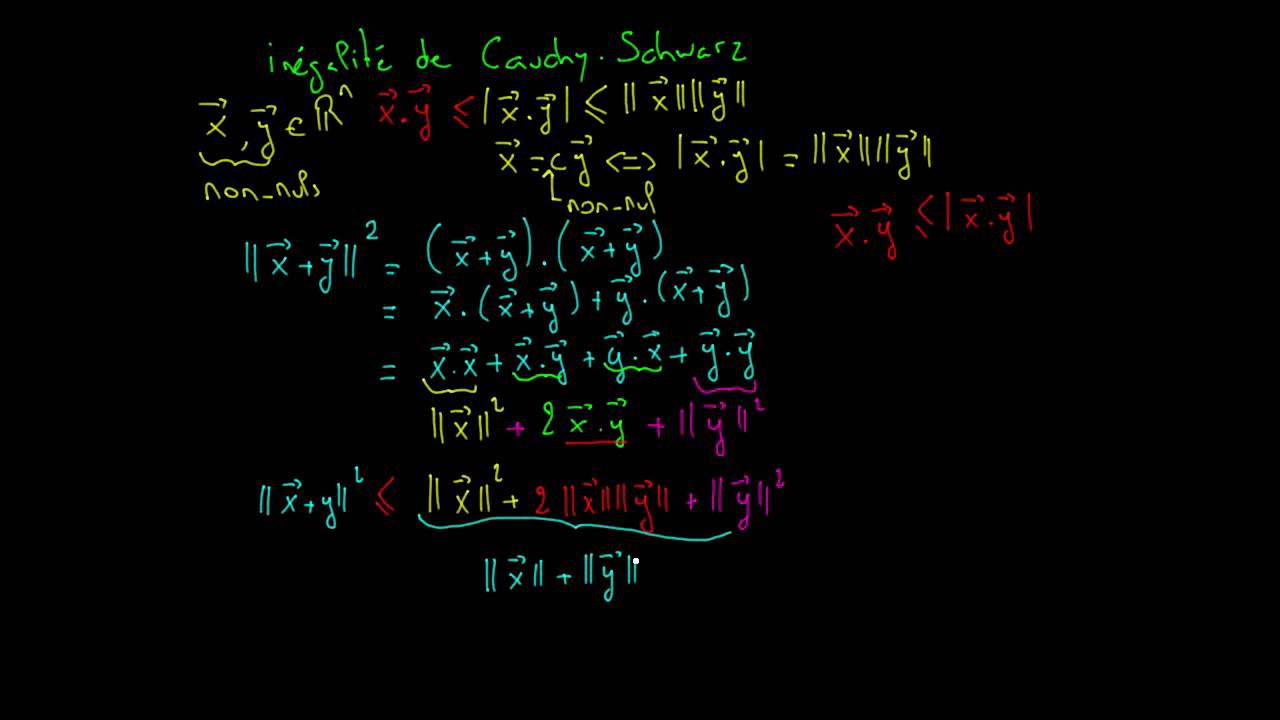 inégalité de Cauchy-Schwarz
x⃗, y⃗ ∈ ℝⁿ x⃗.y⃗ ≤ |x⃗.y⃗| ≤ ||x⃗|| ||y⃗||
x⃗ = c y⃗ <=> |x⃗.y⃗| = ||x⃗|| ||y⃗||
non-nuls
non-nul
x⃗.y⃗ ≤ |x⃗.y⃗|
||x⃗+y⃗||² = (x⃗+y⃗).(x⃗+y⃗)
= x⃗.(x⃗+y⃗) + y⃗.(x⃗+y⃗)
= x⃗.x⃗ + x⃗.y⃗ + y⃗.x⃗ + y⃗.y⃗
||x⃗||² + 2 x⃗.y⃗ + ||y⃗||²
||x⃗+y||² ≤ ||x⃗||² + 2 ||x⃗|| ||y⃗|| + ||y⃗||²
||x⃗|| + ||y⃗||